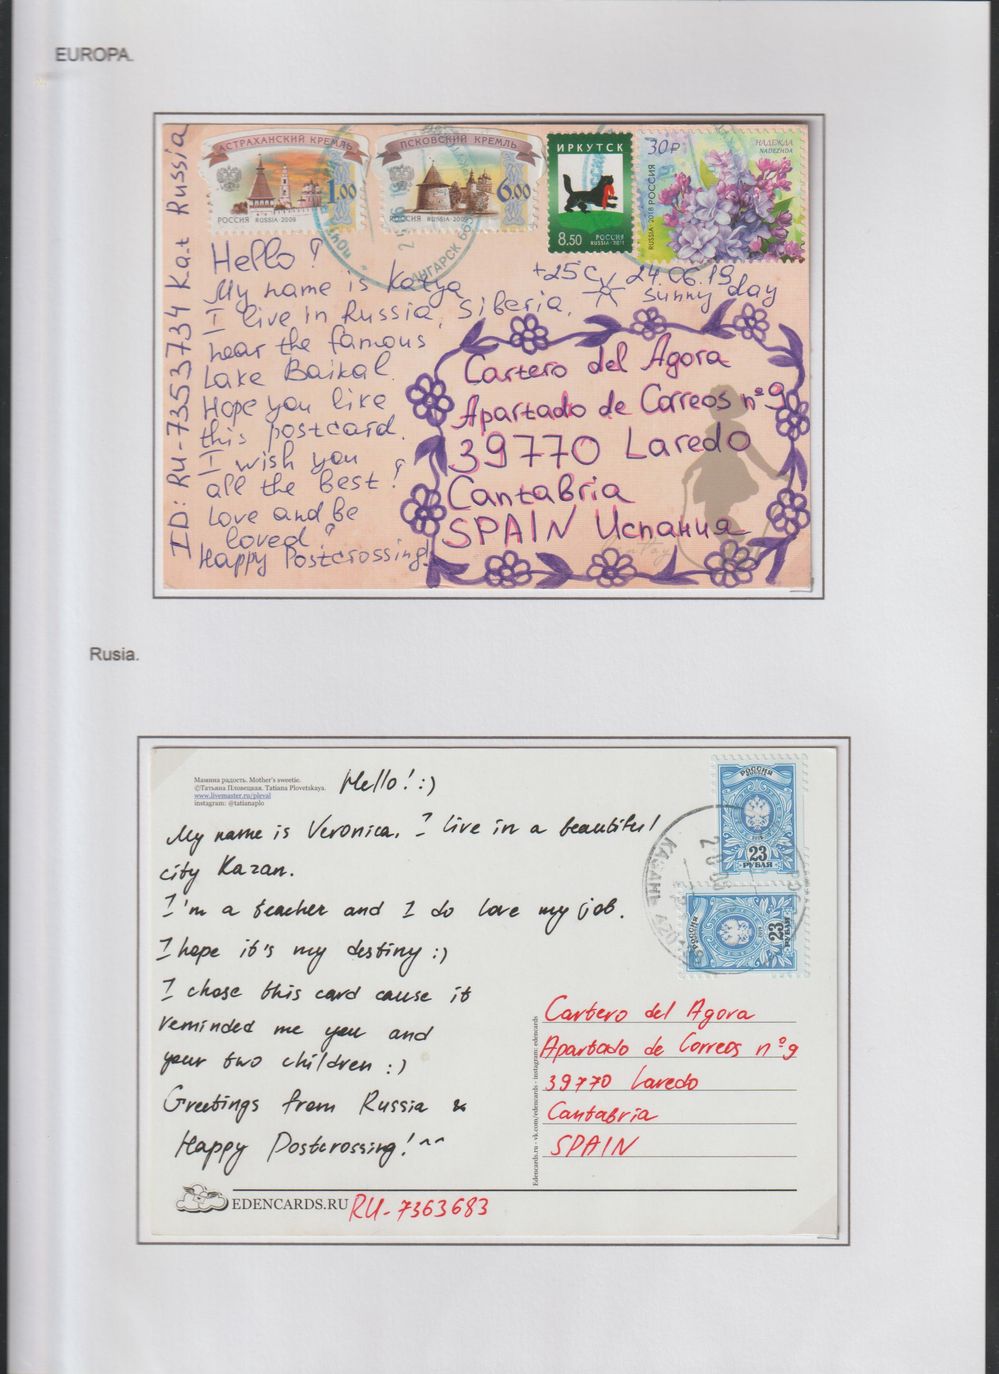 EUROPA.
ID: RU-7353734 Kat Russia
АСТРАХАНСКИЙ КРЕМЛЬ
1.00
РОССИЯ RUSSIA 2009
ПСКОВСКИЙ КРЕМЛЬ
6.00
РОССИЯ RUSSIA 2009
ИРКУТСК
8.50 РОССИЯ
RUSSIA · 2011
30 Р
НАДЕЖДА
NADEZHDA
RUSSIA · 2018 РОССИЯ
АНГАРСК
Hello!
+25C 24.06.19
sunny day
My name is Katya
I live in Russia, Siberia,
near the famous
Lake Baikal.
Hope you like
this postcard.
I wish you
all the best!
Love and be
loved!
Happy Postcrossing!
Cartero del Agora
Apartado de Correos nº 9
39770 Laredo
Cantabria
SPAIN Испания
Rusia.
Мамина радость. Mother's sweetie.
©Татьяна Пловецкая. Tatiana Plovetskaya.
www.livemaster.ru/pleval
instagram: @tatianaplo
Hello! :)
My name is Veronica. I live in a beautiful
city Kazan.
I'm a teacher and I do love my job.
I hope it's my destiny :)
I chose this card cause it
reminded me you and
your two children :)
Greetings from Russia &
Happy Postcrossing! ^^
РОССИЯ
23
РУБЛЯ
РОССИЯ
23
РУБЛЯ
КАЗАНЬ
Cartero del Agora
Apartado de Correos nº 9
39770 Laredo
Cantabria
SPAIN
Edencards.ru - vk.com/edencards - instagram: edencards
EDENCARDS.RU RU-7363683